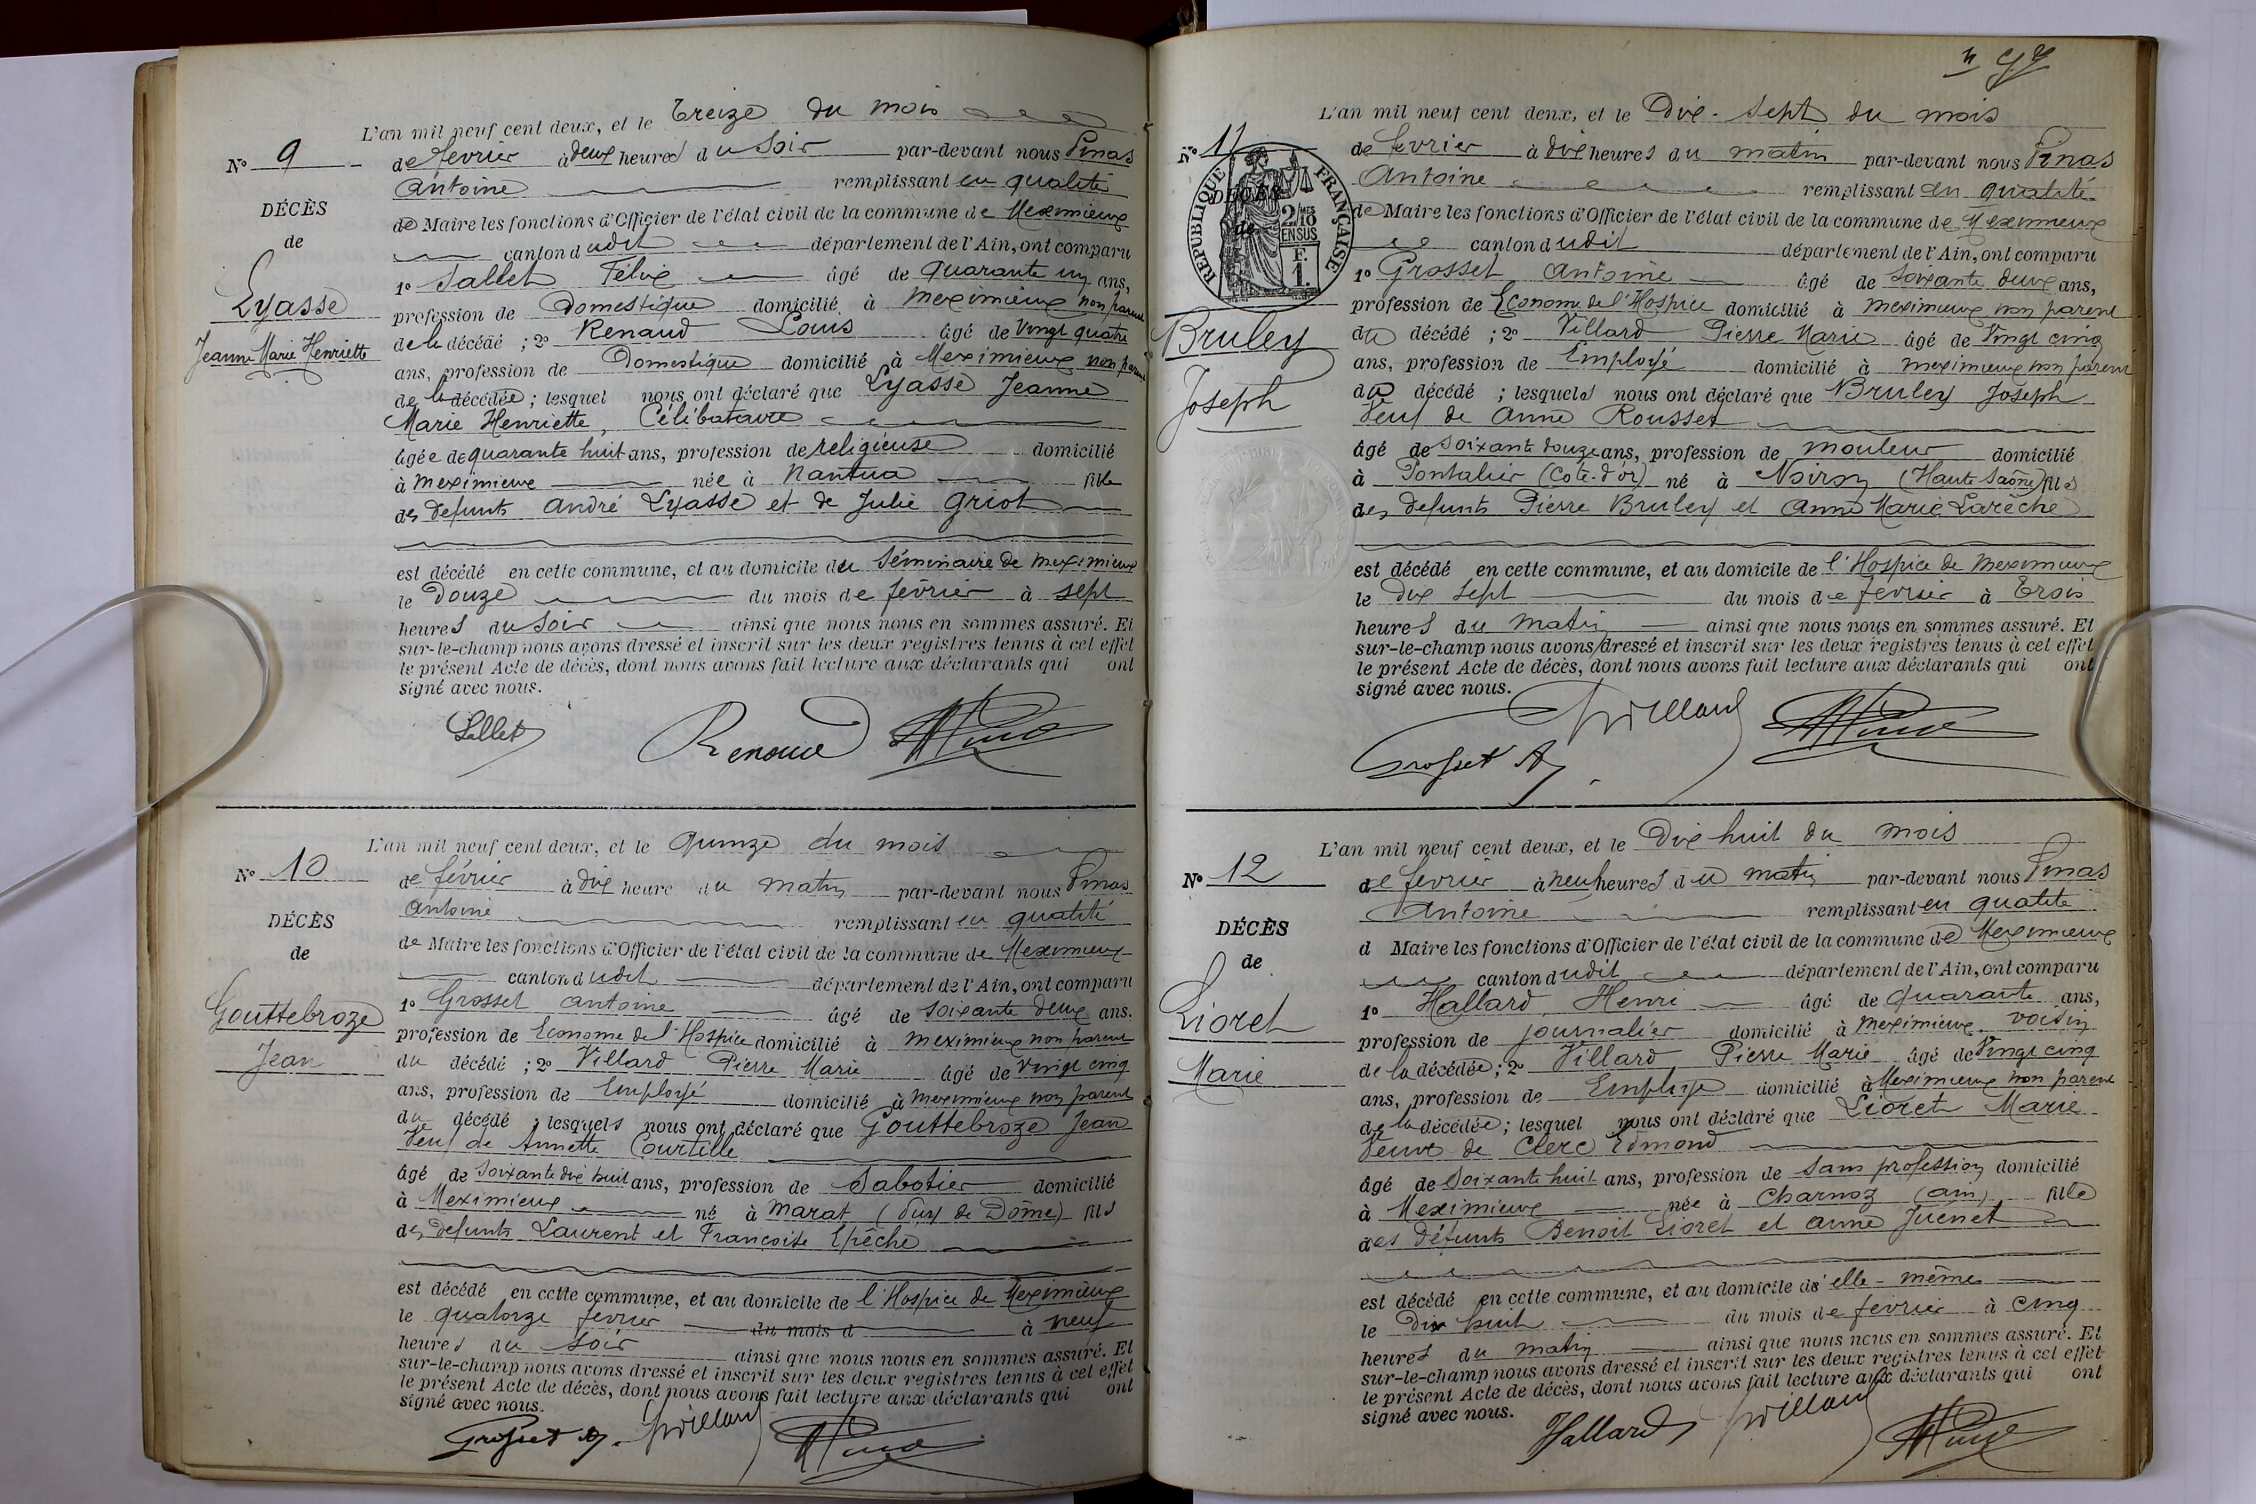 L'an mil neuf cent deux, et le Treize du mois
N° 9 de février à deux heures du Soir par-devant nous Pinas
Antoine remplissant en qualité
DÉCÈS
de Maire les fonctions d'Officier de l'état civil de la commune de Meximieux
de
canton dudit département de l'Ain, ont comparu
Lyasse
1° Sallet Félix âgé de quarante un ans,
profession de Domestique domicilié à Meximieux non parent
Jeanne Marie Henriette
de la décédé ; 2° Renaud Louis âgé de Vingt quatre
ans, profession de Domestique domicilié à Meximieux non parent
de la décédée ; lesquel nous ont déclaré que Lyasse Jeanne
Marie Henriette, Célibataire
âgée de quarante huit ans, profession de religieuse domicilié
à Meximieux née à Nantua fille
des defunts André Lyasse et de Julie Griot
est décédé en cette commune, et au domicile du Séminaire de Meximieux
le Douze du mois de février à sept
heures du Soir ainsi que nous nous en sommes assuré. Et
sur-le-champ nous avons dressé et inscrit sur les deux registres tenus à cet effet
le présent Acte de décès, dont nous avons fait lecture aux déclarants qui ont
signé avec nous.
Sallet Renaud
L'an mil neuf cent deux, et le quinze du mois
N° 10 de février à dix heure du matin par-devant nous Pinas
Antoine remplissant en qualité
DÉCÈS
de Maire les fonctions d'Officier de l'état civil de la commune de Meximieux
de
canton dudit département de l'Ain, ont comparu
Gouttebroze
1° Grosset Antoine âgé de soixante deux ans.
profession de Econome de l'Hospice domicilié à Meximieux non parent
Jean
du décédé ; 2° Villard Pierre Marie âgé de vingt cinq
ans, profession de Employé domicilié à Meximieux non parent
du décédé ; lesquels nous ont déclaré que Gouttebroze Jean
Veuf de Annette Courtille
âgé de soixante dix huit ans, profession de Sabotier domicilié
à Meximieux né à Marat (Puy de Dôme) fils
des defunts Laurent et Françoise Epêche
est décédé en cette commune, et au domicile de l'Hospice de Meximieux
le quatorze fevrier du mois d à neuf
heures du soir ainsi que nous nous en sommes assuré. Et
sur-le-champ nous avons dressé et inscrit sur les deux registres tenus à cet effet
le présent Acte de décès, dont nous avons fait lecture aux déclarants qui ont
signé avec nous.
Grosset A. Villard
L'an mil neuf cent deux, et le Dix-sept du mois
N° 11 de fevrier à dix heures du matin par-devant nous Pinas
Antoine remplissant en qualité
DÉCÈS
de
RÉPUBLIQUE FRANÇAISE
2/10 EN SUS
F. 1.
de Maire les fonctions d'Officier de l'état civil de la commune de Meximieux
canton dudit département de l'Ain, ont comparu
1° Grosset Antoine âgé de soixante deux ans,
profession de Econome de l'Hospice domicilié à Meximieux non parent
Bruley
du décédé ; 2° Villard Pierre Marie âgé de Vingt cinq
ans, profession de Employé domicilié à Meximieux non parent
Joseph
du décédé ; lesquels nous ont déclaré que Bruley Joseph
Veuf de Anne Rousset
âgé de soixante douze ans, profession de mouleur domicilié
à Pontalier (Cote-d'or) né à Noiron (Haute Saône) fils
des defunts Pierre Bruley et Anne Marie Larêche
est décédé en cette commune, et au domicile de l'Hospice de Meximieux
le dix sept du mois de fevrier à Trois
heures du Matin ainsi que nous nous en sommes assuré. Et
sur-le-champ nous avons dressé et inscrit sur les deux registres tenus à cet effet
le présent Acte de décès, dont nous avons fait lecture aux déclarants qui ont
signé avec nous.
Villard
Grosset A.
L'an mil neuf cent deux, et le Dix huit du mois
N° 12 de fevrier à neuf heures du matin par-devant nous Pinas
Antoine remplissant en qualité
DÉCÈS
d Maire les fonctions d'Officier de l'état civil de la commune de Meximieux
de
canton dudit département de l'Ain, ont comparu
Lioret
1° Hallard Henri âgé de quarante ans,
profession de journalier domicilié à Meximieux voisin
Marie
de la décédée ; 2° Villard Pierre Marie âgé de Vingt cinq
ans, profession de Employé domicilié à Meximieux non parent
de la décédée ; lesquel nous ont déclaré que Lioret Marie
Veuve de Clerc Edmond
âgé de soixante huit ans, profession de sans profession domicilié
à Meximieux née à Charnoz (ain) fille
des défunts Benoit Lioret et Anne Juenet
est décédé en cette commune, et au domicile d'elle-même
le Dix huit du mois de fevrier à cinq
heures du matin ainsi que nous nous en sommes assuré. Et
sur-le-champ nous avons dressé et inscrit sur les deux registres tenus à cet effet
le présent Acte de décès, dont nous avons fait lecture aux déclarants qui ont
signé avec nous.
Hallard Villard